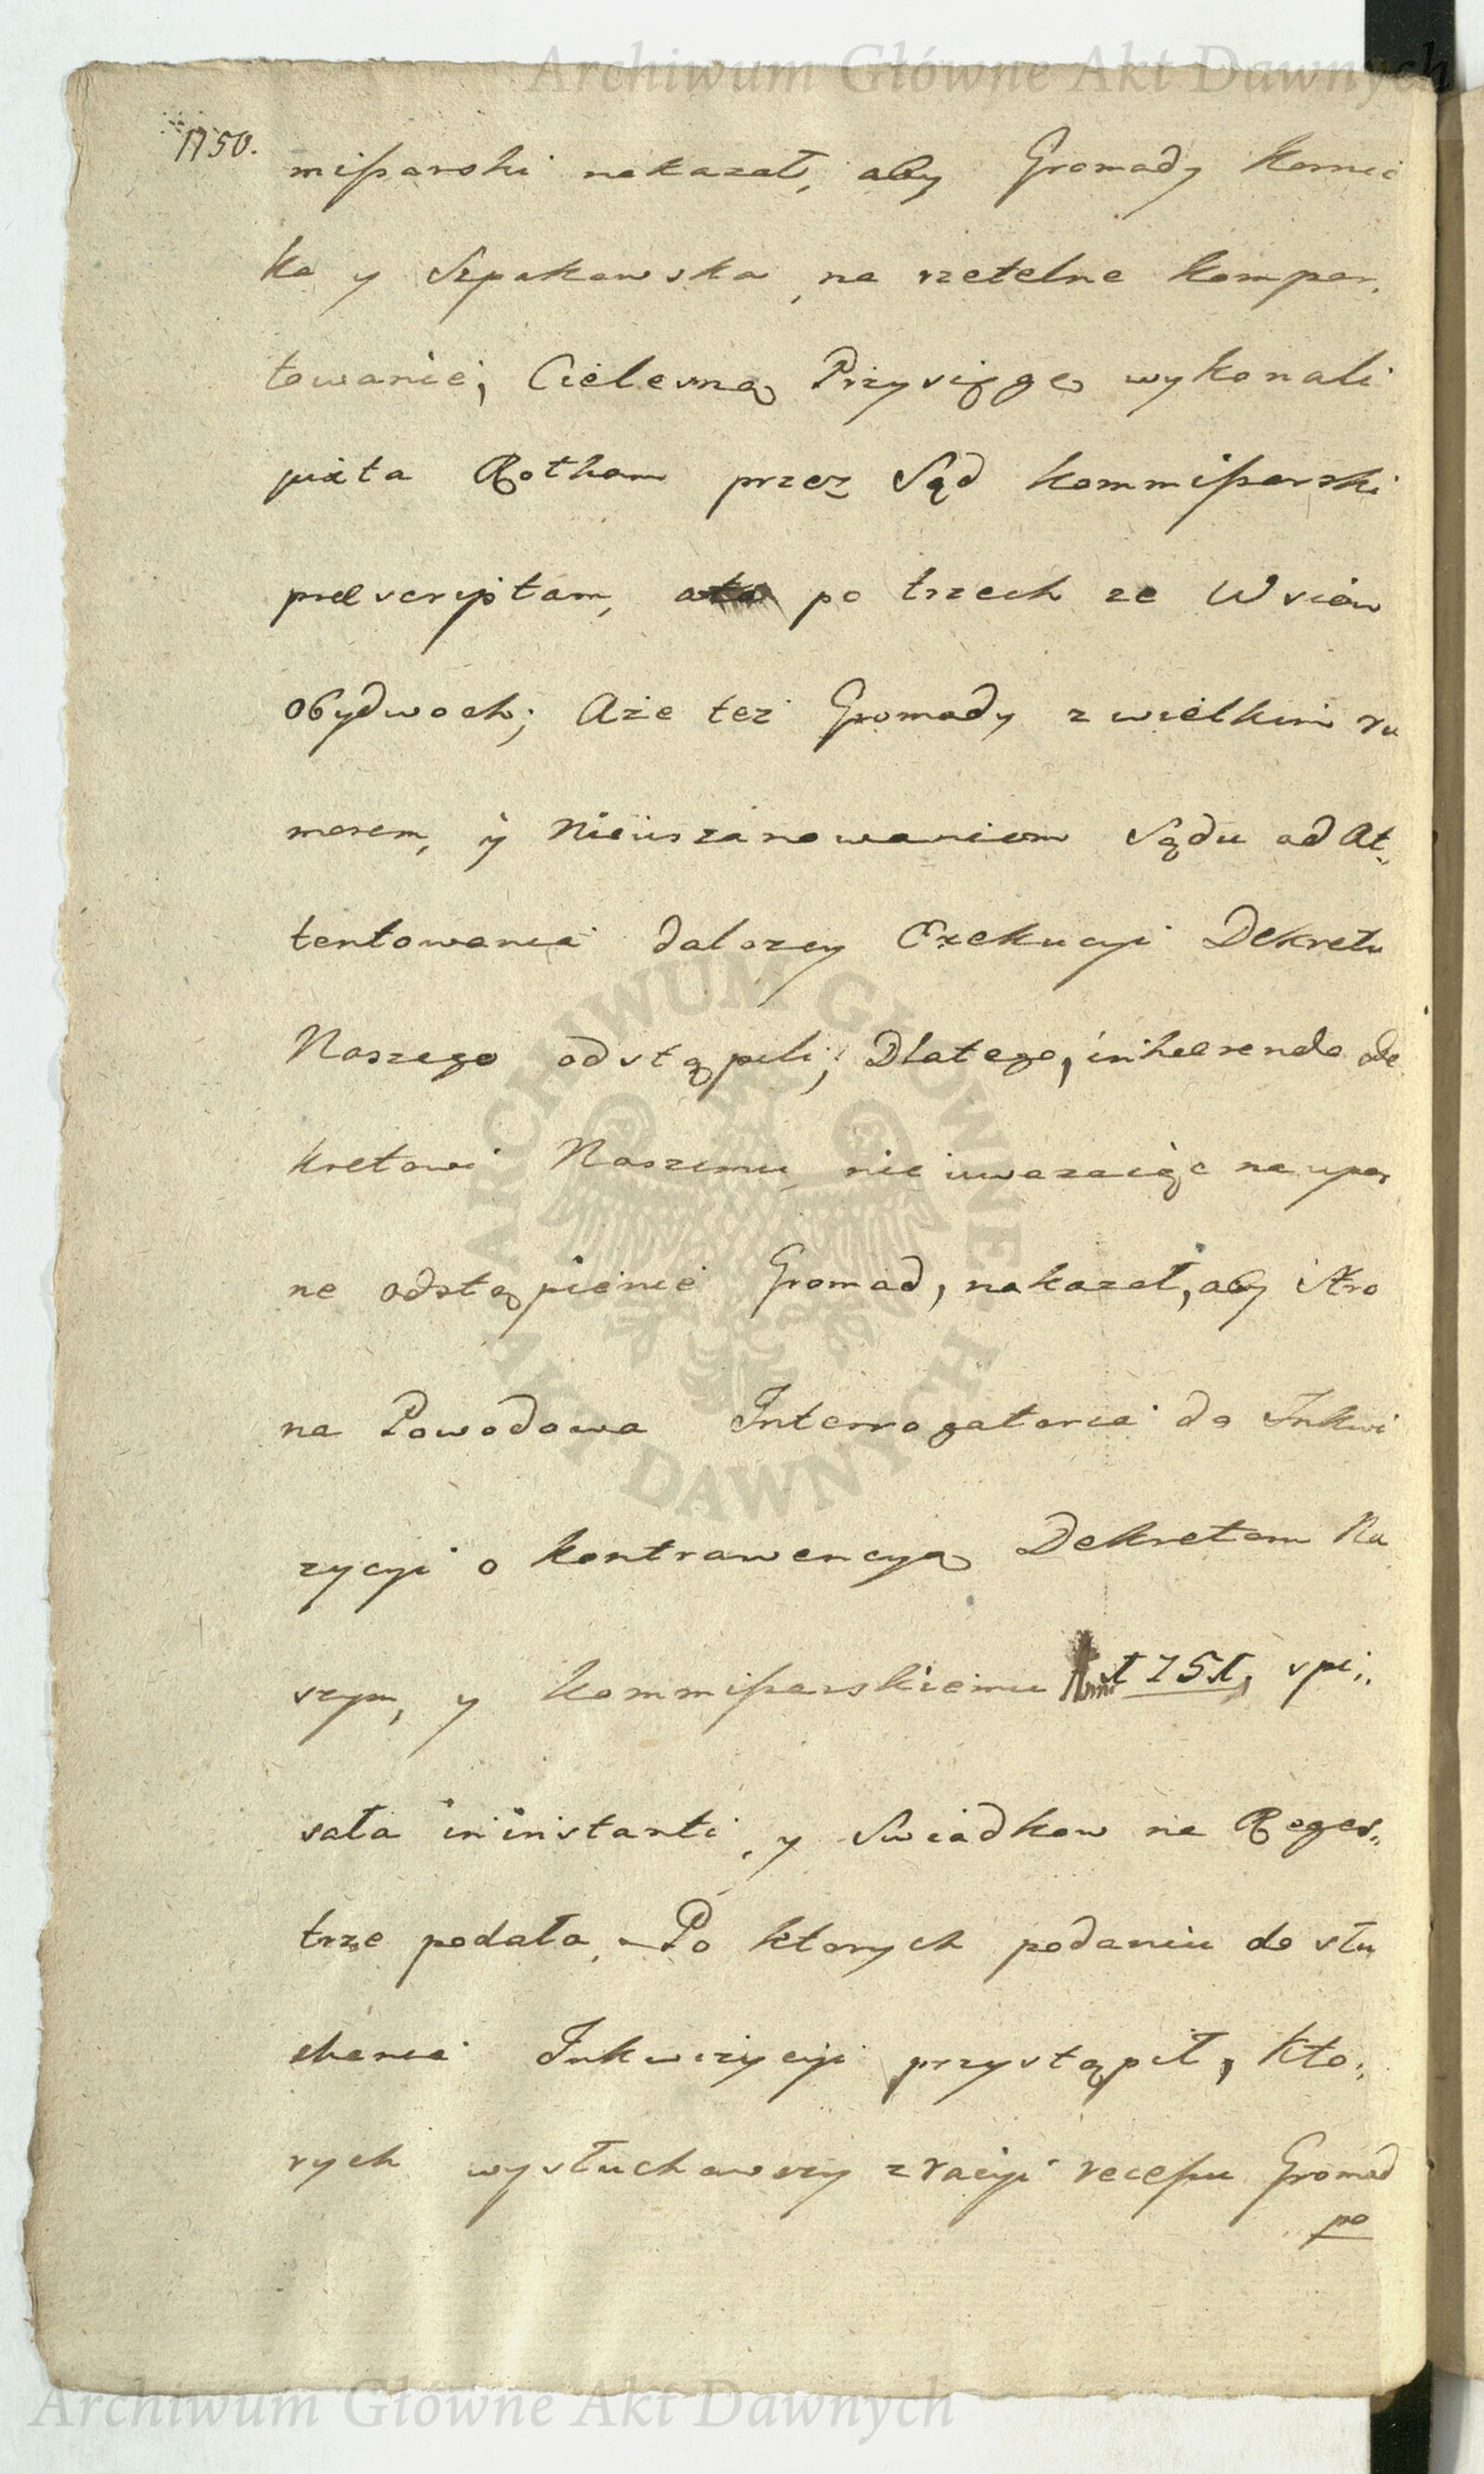 Archiwum Główne Akt Dawnych
1750.
mißarski nakazał, aby Gromady Kornic
ka y Szpakowska, na rzetelne kompor,
towanie, Cielesną Przysięgę wykonali
juxta Rotham przez Sąd kommißarski
præscriptam, a to po trzech ze Wsiow
obydwoch; Aże też Gromady z wielkim ru
morem, y Nieuszanowaniem Sądu od At,,
tentowania dalszey Exekucyi Dekretu
Naszego odstąpili; Dlatego, inhærendo de
kretowi Naszemu, nie uwazaiąc na upor
ne odstąpienie Gromad, nakazał, aby Stro
na Powodowa Interrogatoria do Inkwi
zycyi o kontrawencyą Dekretom Na
szym, y kommißarskiemu 1751, spi,,
sała in instanti, y Swiadkow na Reges,,
trze podała, Po ktorych podaniu do słu
chania Inkwizycyi przystąpił, Kto,,
rych wysłuchawszy z racyi recesu Gromad
po
ARCHIWUM GŁÓWNE AKT DAWNYCH
Archiwum Główne Akt Dawnych